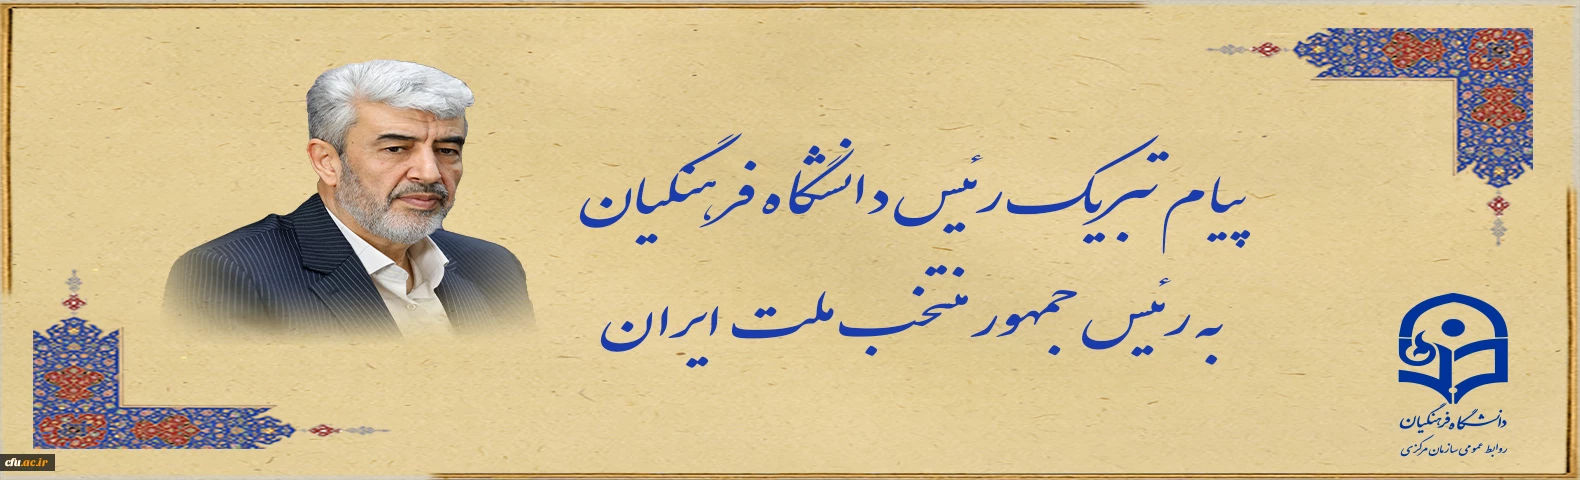 پیام تبریک رئیس دانشگاه فرهنگیان
به رئیس جمهور منتخب ملت ایران
دانشگاه فرهنگیان
روابط عمومی سازمان مرکزی
cfu.ac.ir